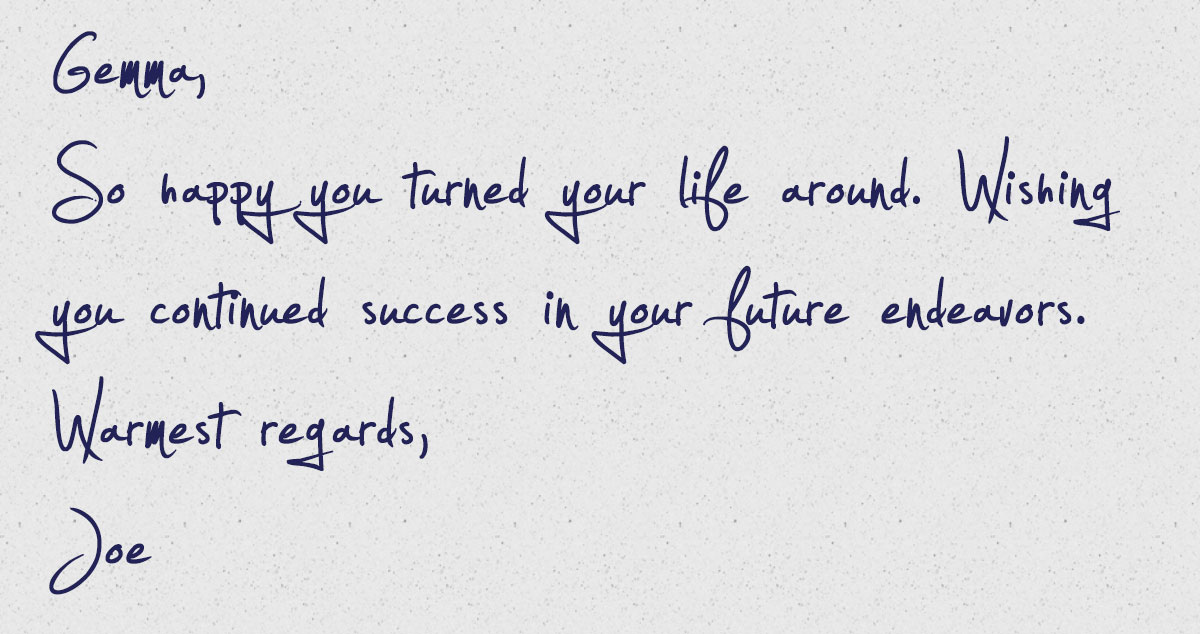 Gemma,
So happy you turned your life around. Wishing
you continued success in your future endeavors.
Warmest regards,
Joe